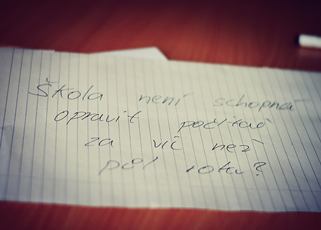 Škola není schopná
opravit počítač
za víc než
půl roku?